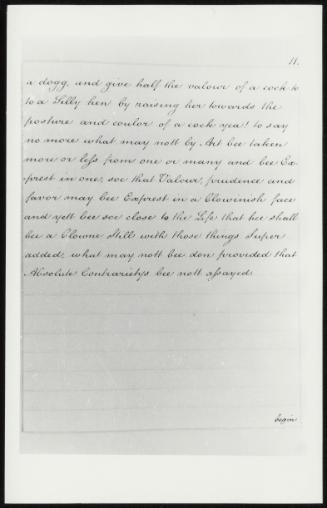 11.
a dogg, and give half the valour of a cock to
to a Silly hen by raising her towards the
posture and coulor of a cock yea! to say
no more what may nott by Art bee taken
more or less from one or many and bee Ex-
prest in one, soe that Valour, prudence and
favor may bee Exprest in a Clownish face
and yett bee soe close to the Life that hee shall
bee a Clowne Still with those things Super
added, what may nott bee don provided that
Absolute Contrarietys bee nott assayed
begin